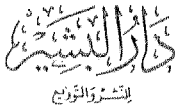 دار البشير
للنشر والتوزيع